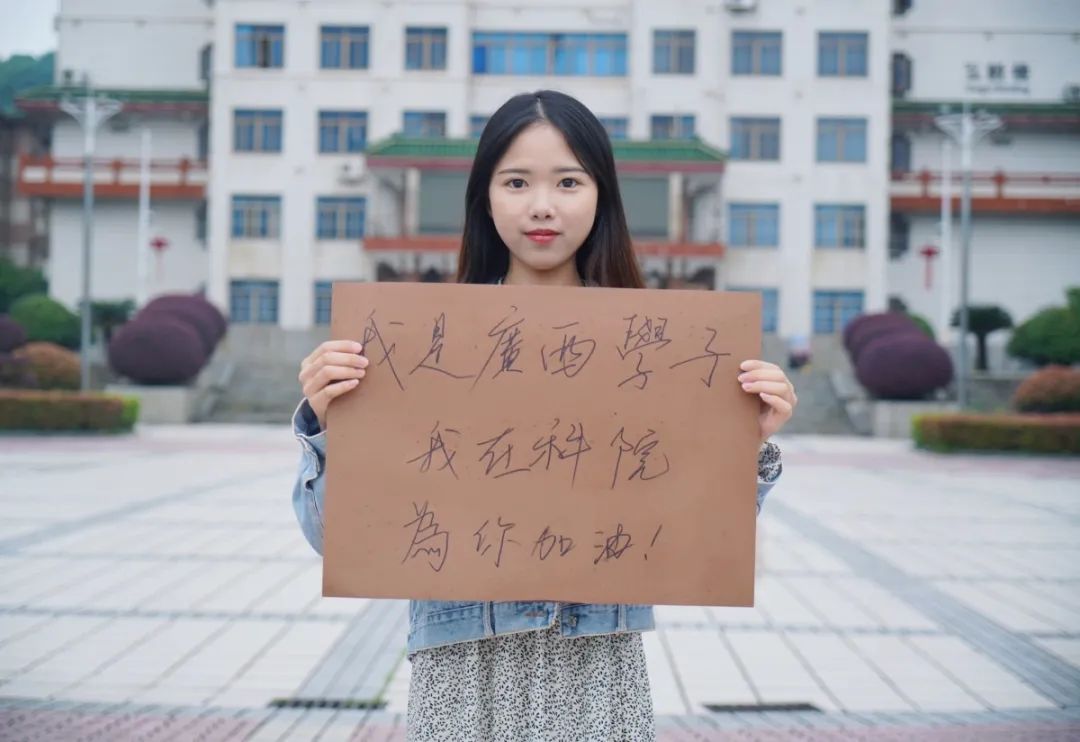 我是廣西學子
我在科院
為你加油！